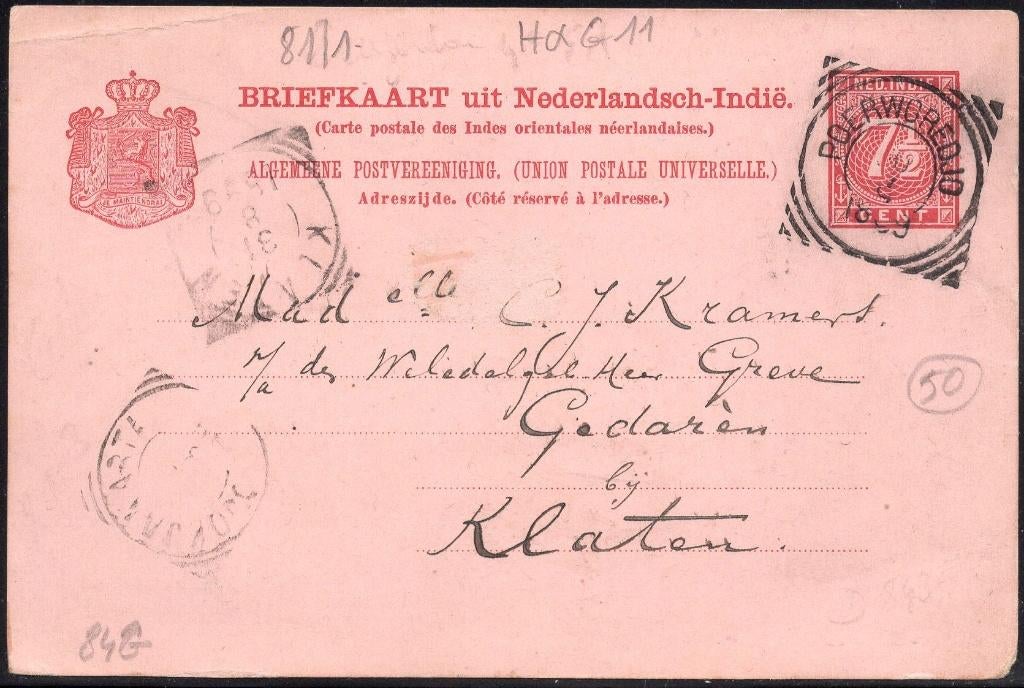 81/1- H&G 11
BRIEFKAART uit Nederlandsch-Indië.
(Carte postale des Indes orientales néerlandaises.)
ALGEMEENE POSTVEREENIGING. (UNION POSTALE UNIVERSELLE.)
Adreszijde. (Côté réservé à l'adresse.)
JE MAINTIENDRAI
NED. INDIE
7½
CENT
POERWOREDJO
Madelle C. J. Kramers.
p/a den Weledelgeb. Heer Greve
50
Gedarèn
bij
Klaten.
DJOKJAKARTA